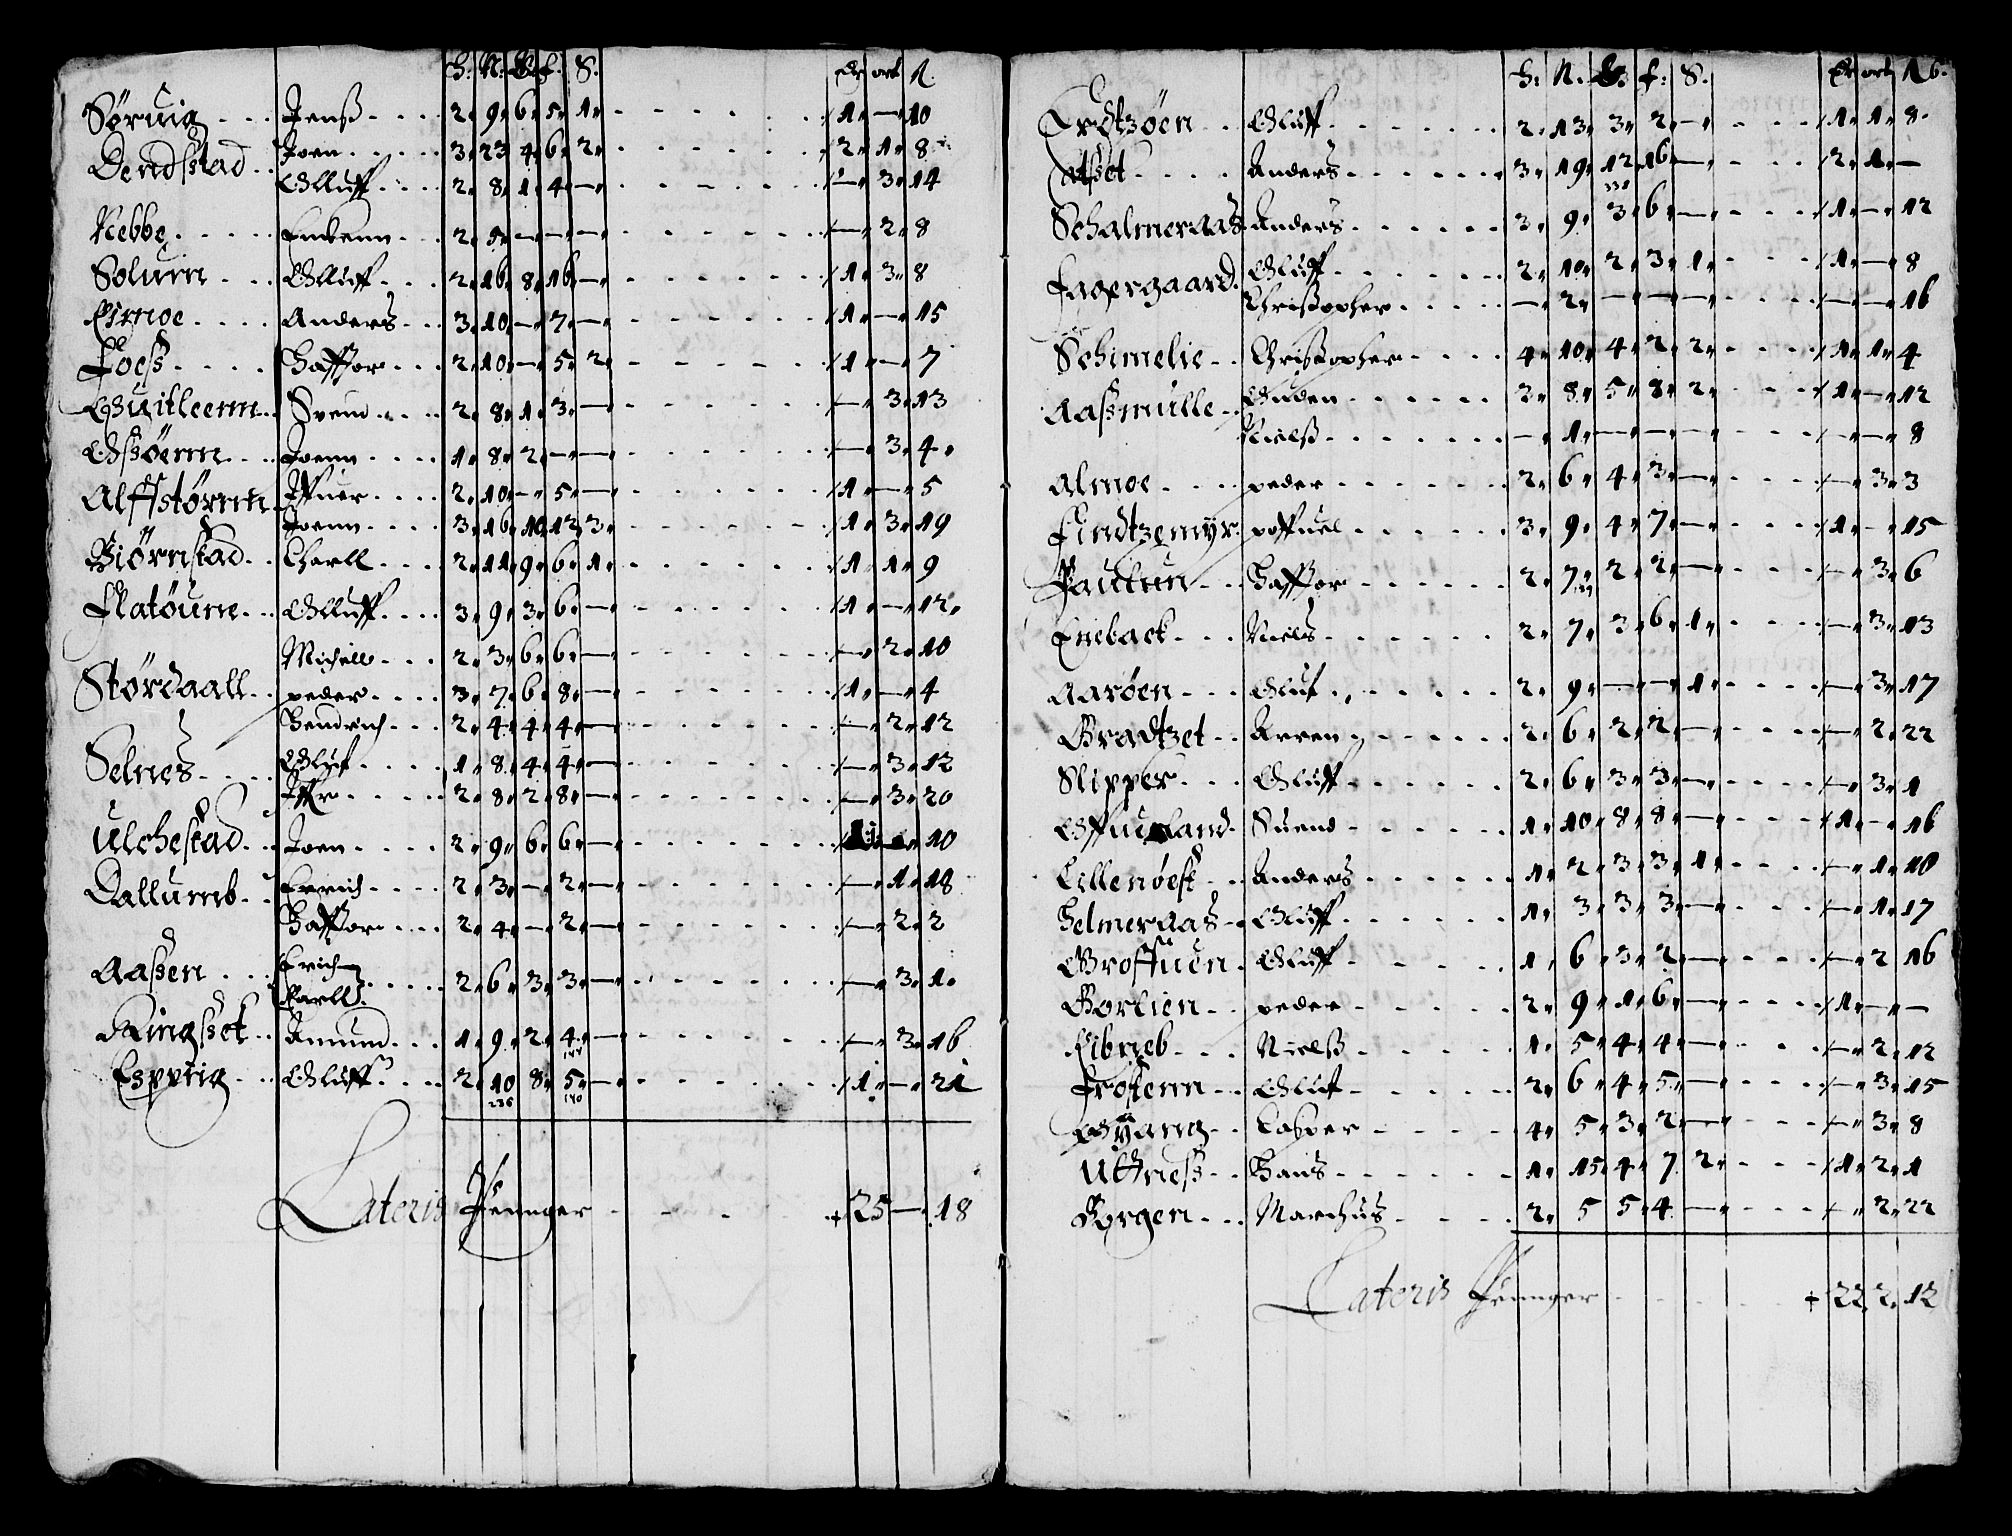 H. N. G. f. S. Dr ort ß.
Sørvig Jenß 2 9 6 5 1 1 — 10
Dendstad Joen 3 23 4 6 2 2 1 8
Olluff 2 8 1 4 — — 3 14
Nebbe 2 5 — — — — 2 8
Solum Olluff 2 16 8 16 — 1 3 8
Anders 3 10 — 7 — 1 — 15
Foeß Haffor 2 10 — 5 2 1 — 7
Quitleenn Svend 2 8 1 3 — — 3 13
Joenn 1 8 2 — — — 3 4
Alffstørnn Iffuer 2 10 — 5 — 1 — 5
Joenn 3 16 10 13 3 1 3 19
Biørnstad Charll 2 11 9 6 1 1 1 9
Flatøunn Olluff 3 9 3 6 — 1 — 12
Michell 2 3 6 6 — — 2 10
Størdaall peder 3 7 6 8 — 1 — 4
Hendrich 2 4 4 4 — — 2 12
Selnes Oluf 1 8 4 4 — — 3 12
2 8 2 8 — — 3 20
Ulchestad Joen 2 9 6 6 — 1 — 10
Dallumb Erich 2 3 — 2 — — 1 18
Haffor 2 4 — 2 — — 2 2
Aaßen Erich
Karll 2 6 3 3 — — 3 1
Ringsset Amund 1 9 2 4 — — 3 16
144
Espviig Oluff 2 10 8 5 — 1 — 21
236 140
Lateris Penger + 25 — 18
H. N. f. S. Dr ort ß.
Oluff 2 13 3 2 — 1 1 8
Anders 3 19 12 16 — 2 1 —
Schalmeraas Anders 3 9 3 6 — 1 — 12
Fagergaard Oluff 2 10 2 3 1 1 — 8
Christopher — 2 — — — — — 16
Schimelie Christopher 4 10 4 2 2 1 1 4
Aaßmulle Guden 3 8 5 8 2 1 — 12
Nielß — 1 — — — — — 8
Almoe peder 2 6 4 3 — — 3 3
Findtzemyr poffuel 3 9 4 7 — 1 — 15
Haffor 2 7 2 2 — — 3 6
Eneback Niels 2 7 3 6 1 — 3 13
Aarøen Oluf 2 9 — — 1 — 3 17
Bradtzet Arren 2 6 2 2 — — 2 22
Slipper Oluff 2 6 3 3 — — 3 1
Suend 1 10 8 8 — 1 — 16
Lillenøest Anders 1 2 3 3 1 — 1 10
Helmeraas Oluff 1 3 3 3 — — 1 17
Groffuen Oluff 1 6 3 2 — — 2 16
Gorlien peder 2 9 1 6 — 1 — —
Nielß 1 5 4 4 — — 2 12
Frostenn Oluf 2 6 4 5 — — 3 15
Casper 4 5 3 2 — — 3 8
Utneß Hans 1 15 4 7 2 1 2 1
Borgen Marchus 2 5 5 4 — — 2 22
Lateris Penger + 22 2 12